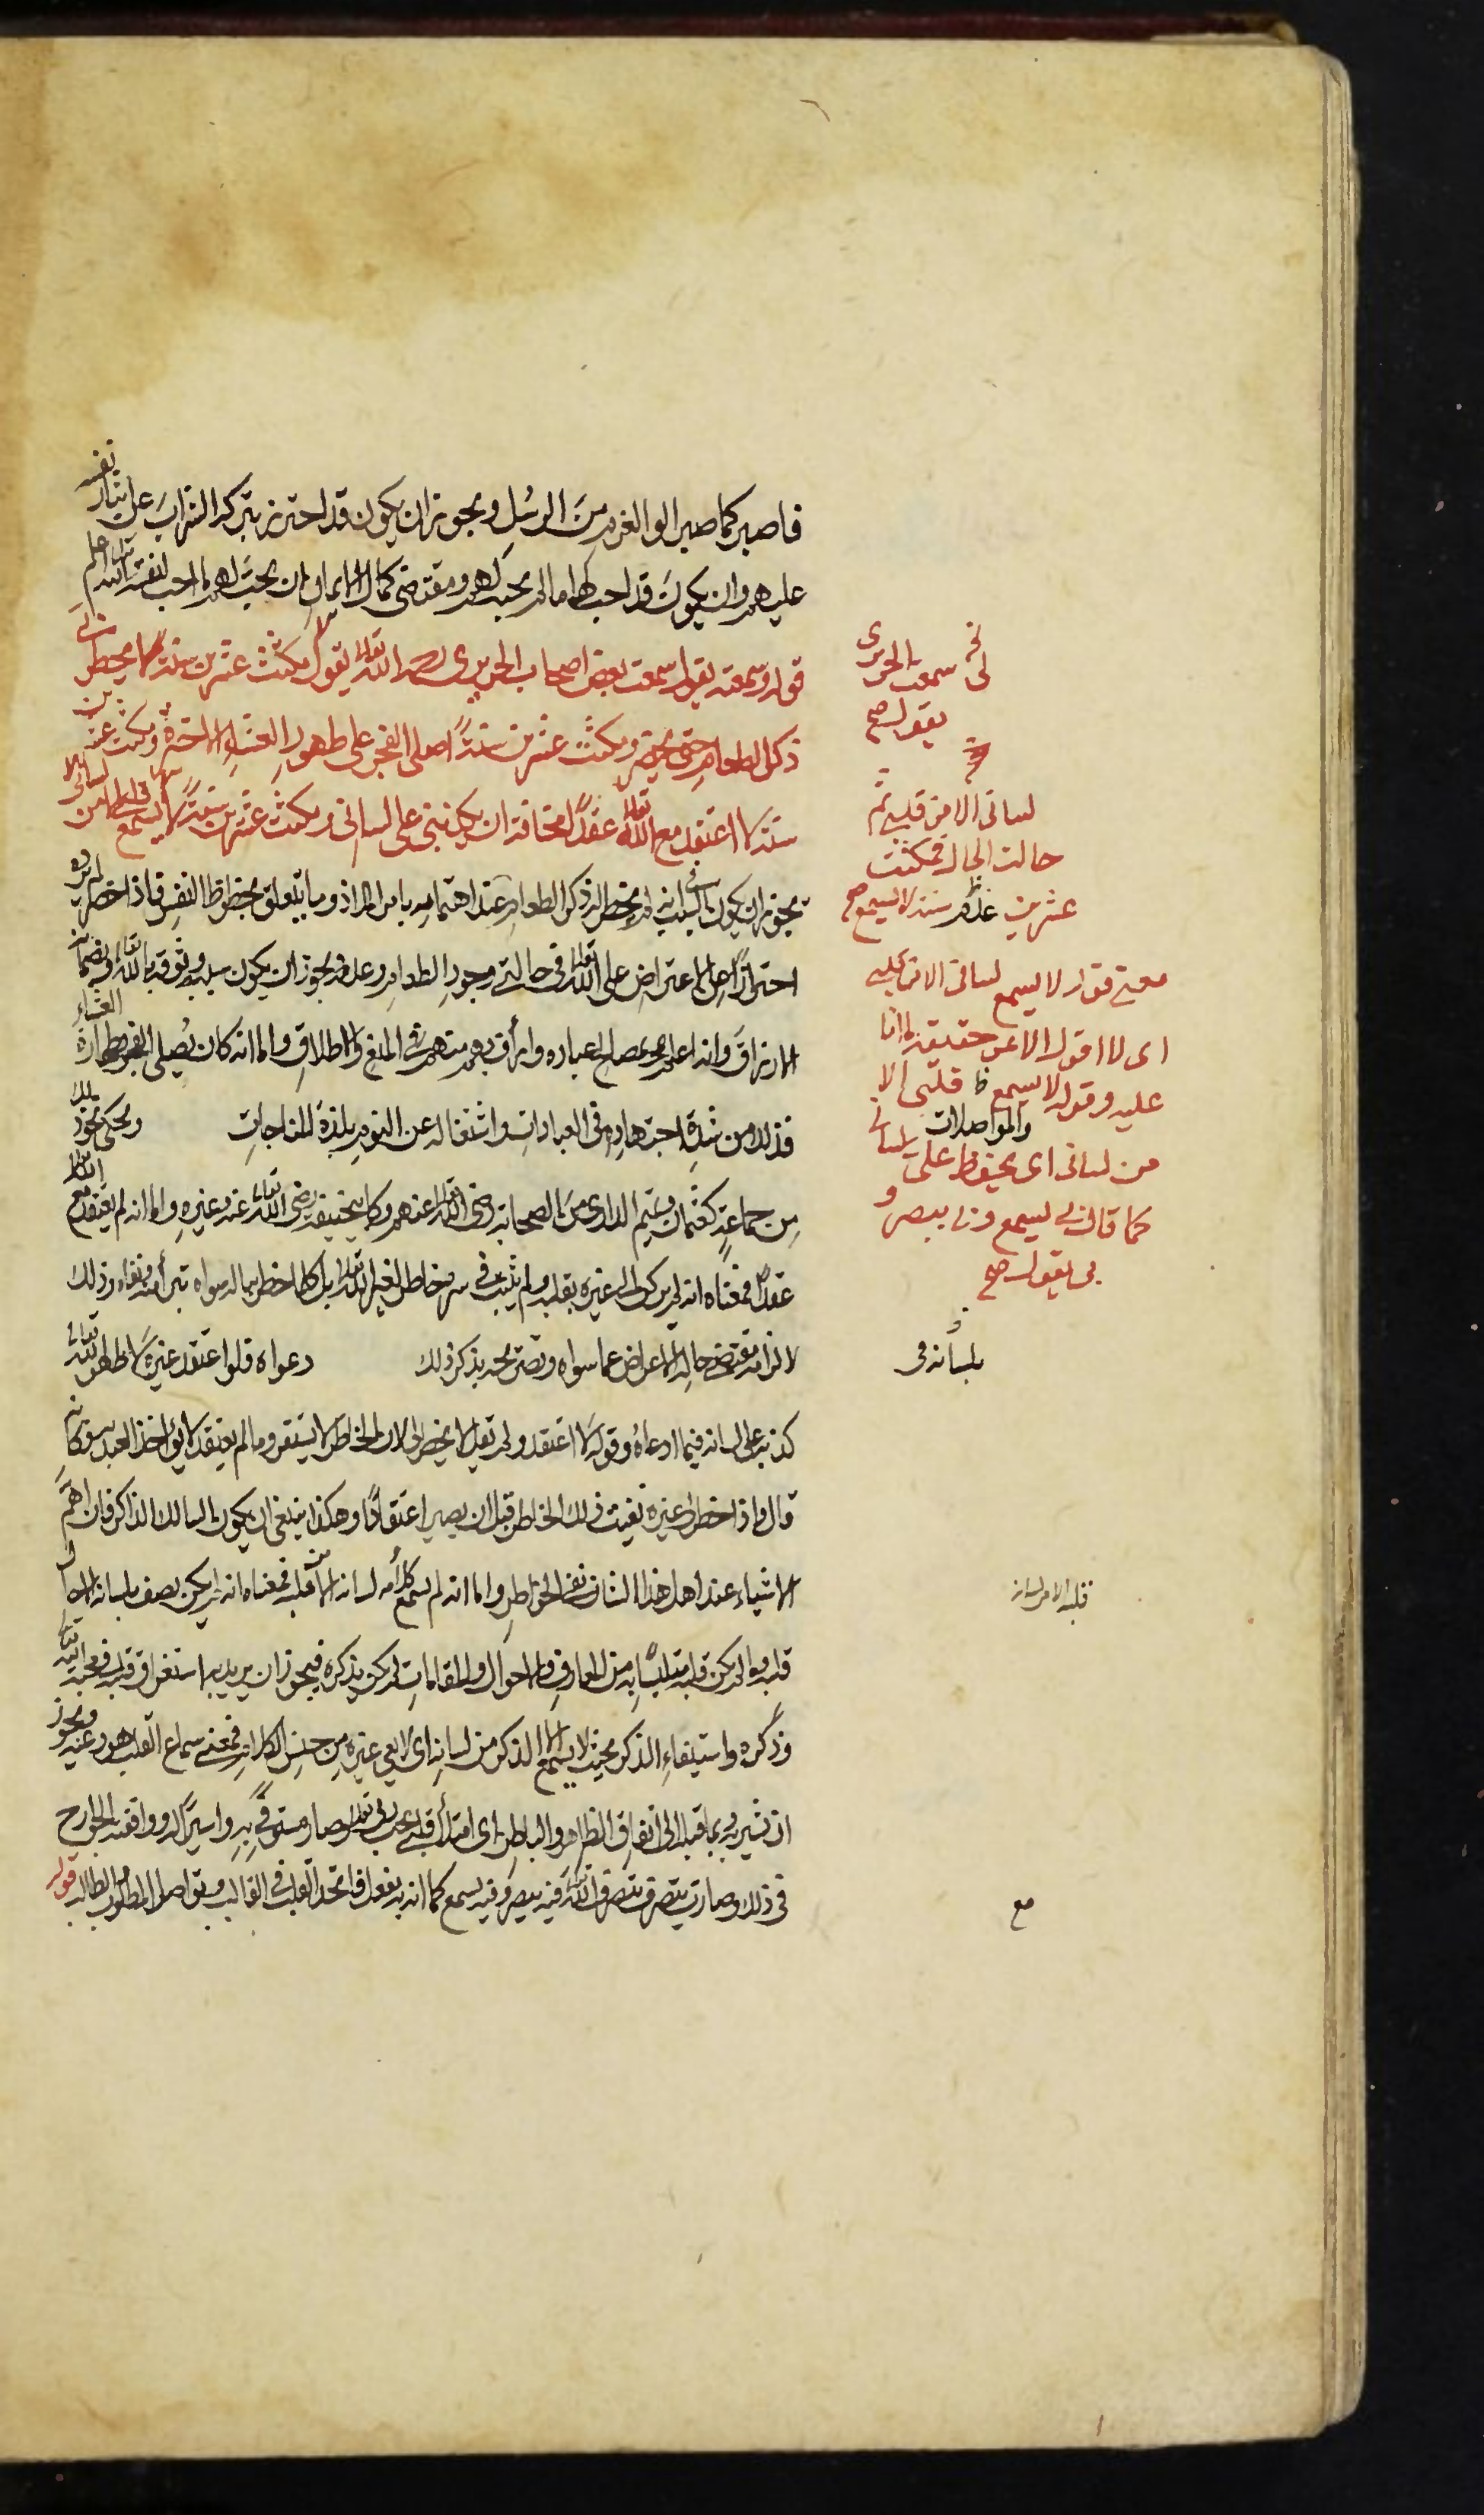 فاصبر كما صبر اولوا العزم من الرسل ويجوز ان يكون قد احترز بتركه الشراب عن ايثار نفسه
عليهم وان يكون قد احب لها ما لم يحبه لهم ومقتضى كمال الايمان ان يحب لهم ما احب لنفسه والله اعلم
قوله وسمعته يقول سمعت بعض اصحاب الجريرى رحمه الله تعالى يقول مكثت عشرين سنة لا يخطر لى
ذكر الطعام حتى يحضر ومكثت عشرين سنة اصلى الفجر على طهور العشاء الاخرة ومكثت عشرين
سنة لا اعتقد مع الله تعالى عقدا مخافة ان يكذبنى على لسانى ومكثت عشرين سنة لا يسمع قلبى الا من لسانى
يجوز ان يكون لم يخطر له ذكر الطعام عند اهتمامه بامر الله اذ وما يتعلق بحظوظ النفس فاذا حضر لم يرده
احترازا عن الاعتراض على الله تعالى فى حالتى وجود الطعام وعدمه ويجوز ان يكون سببه وثوقه بالله تعالى وبضمانه
الارزاق وانه اعلم بمصالح عباده وارأف بهم منهم فى المنع والاطلاق واما انه كان يصلى الفجر بطهارة العشاء
فذلك من شدة اجتهاده فى العبادات واشتغاله عن النوم بلذة المناجات ويحكى نحو ذلك
من جماعة كعثمان وتميم الدارى من الصحابة رضى الله تعالى عنهم وكابى حنيفة رضى الله تعالى عنه وغيره واما انه لم يعتقد مع الله تعالى
عقدا فمعناه انه لم يركن الى غيره بقلبه ولم يثبت فى سره خاطر لغير الله تعالى بل كلما خطر بباله سواه تبرأ منه ونفاه وذلك
لالزامه مقتضى حاله الاعراض عما سواه وتصريحه بذكر ذلك دعواه فلو اعتقد غيره لاظهر الله تعالى
كذبه على لسانه فيما ادعاه وقوله لا اعتقد ولم يقل لا يخطر لى لان الخاطر لا يستقر وما لم يعتقد لا يؤاخذ العبد به وكانه
قال واذا خطر لى غيره نفيت ذلك الخاطر قبل ان يصير اعتقادا وهكذا ينبغى ان يكون السالك الذاكر فان اهم
الاشياء عند اهل هذا الشان نفى الخواطر واما انه لم يسمع كلامه لسانه الا من قلبه فمعناه انه لم يكن يصف بلسانه الا حال
قلبه وما لم يكن قلبه متلبسا به من المعارف والاحوال والمقامات لم يكن يذكره فيجوز ان يريد به استغراق قلبه فى محبة الله تعالى
وذكره واستيفاء الذكر بحيث لا يسمع الا الذكر من لسانه اى لا يعى غيره من جنس الكلام فمعنى سماع القلب هو وعيه ويجوز
ان تشير به وبما قبله الى اتفاق الظاهر والباطن اى امتلأ قلبى بحب ربى تعالى وصار مستوفى به واسيرا له ووافقته الجوارح
فى ذلك وصارت تتصرف بتصرف الله تعالى فيه يبصر وفيه يسمع كما انه به يفعل فاتحد القلب فى القالب وتواصل المطلوب والطالب قوله
لى سمعت الجريرى
يقول صح
لسانى الا من قلبى ثم
حالت الحال فمكثت
عشرين سنة لا يسمع صح
معنى قوله لا يسمع لسانى الا من قلبى
اى لا اقول الا عن حقيقة لما انا
عليه وقوله لا يسمع قلبى الا
والمواصلات
من لسانى اى يحفظ على لسانى
كما قال بى يسمع وبى يبصر و
بى يقول صح
بلسانه فى
قلبه الا من لسانه
مع